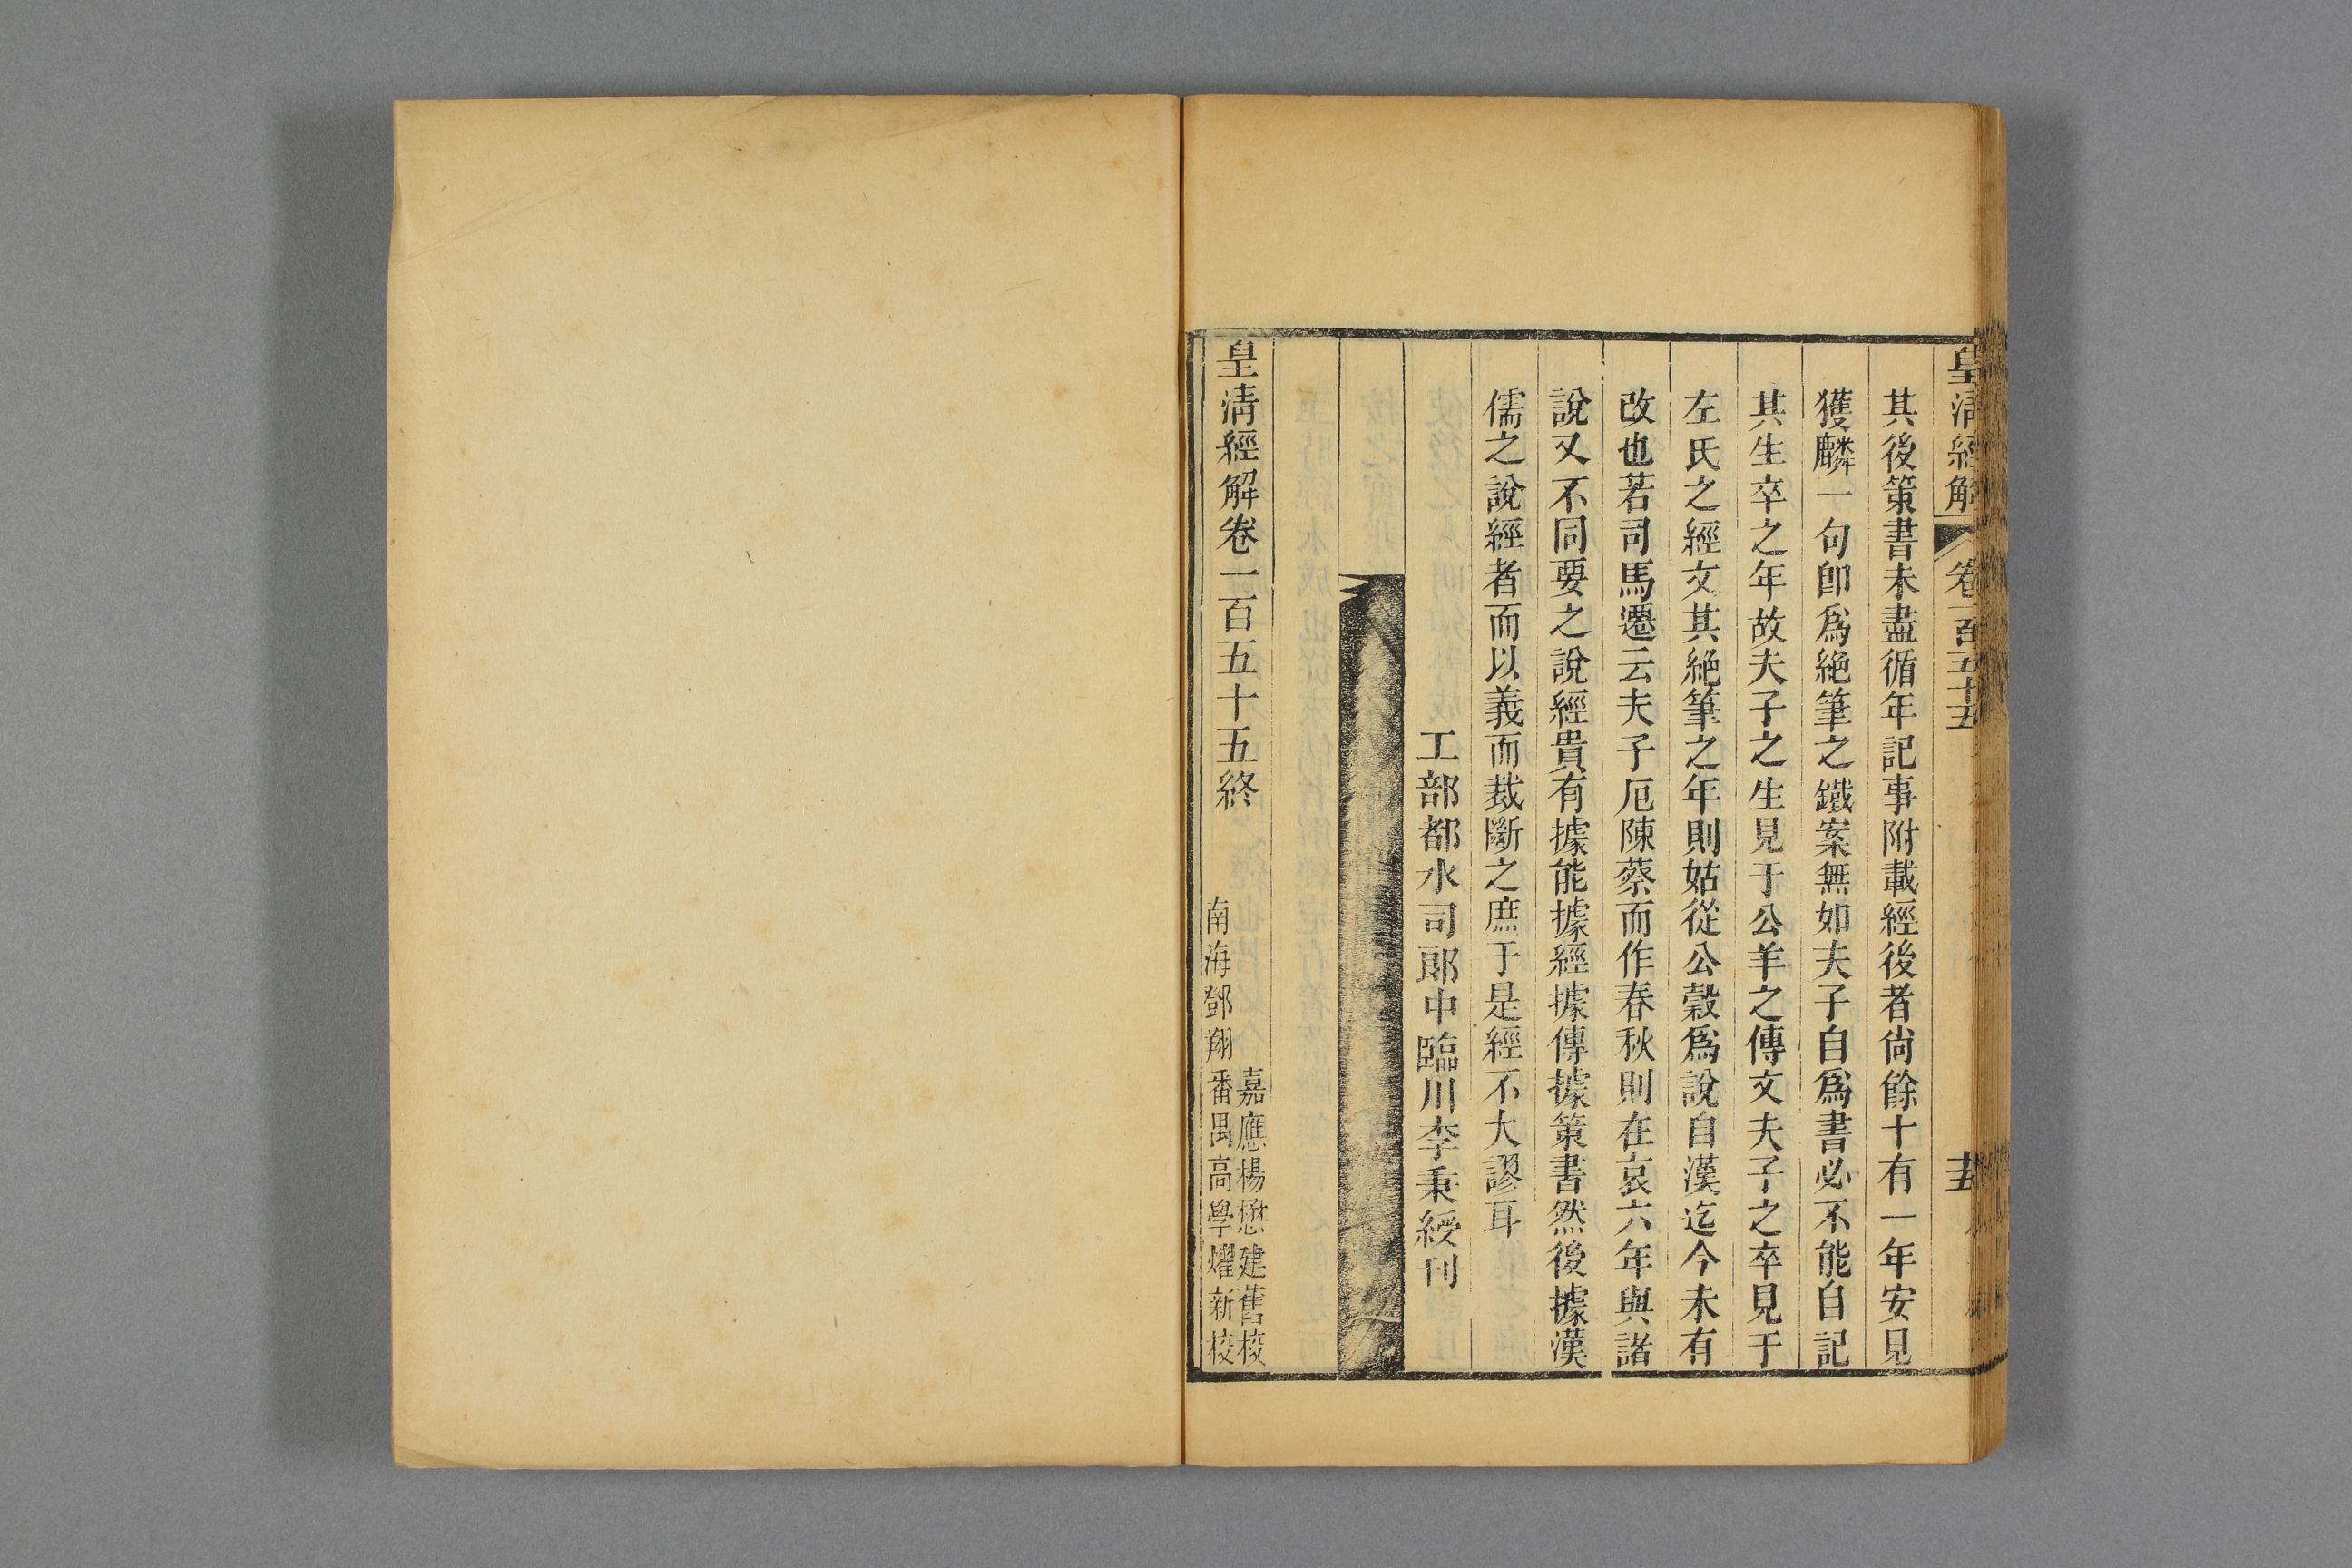 皇清經解 卷一百五十五 十五
其後策書未盡循年記事附載經後者尙餘十有一年安見
獲麟一句卽爲絕筆之鐵案無如夫子自爲書必不能自記
其生卒之年故夫子之生見于公羊之傳文夫子之卒見于
左氏之經文其絕筆之年則姑從公穀爲說自漢迄今未有
改也若司馬遷云夫子厄陳蔡而作春秋則在哀六年與諸
說又不同要之說經貴有據能據經據傳據策書然後據漢
儒之說經者而以義而裁斷之庶于是經不大謬耳
工部都水司郞中臨川李秉綬刊
皇清經解卷一百五十五終
嘉應楊懋建舊校
南海鄧翔
番禺高學燿新校